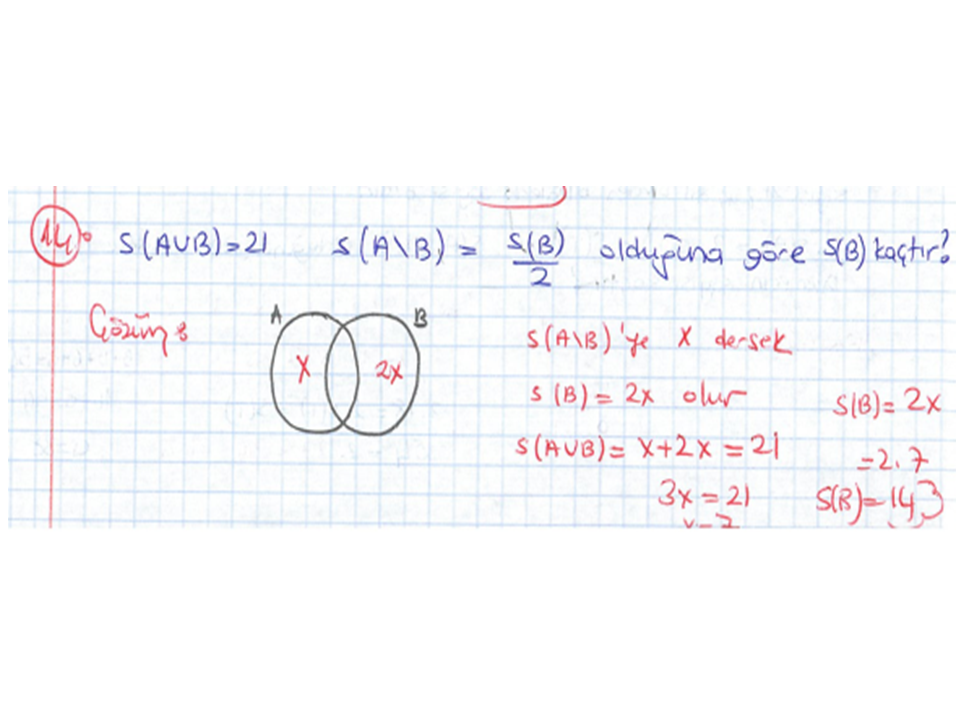 14. S(A∪B)=21 S(A\B) = S(B)/2 olduğuna göre S(B) kaçtır?
Çözüm:
A B
X 2x
S(A\B)'ye X dersek
S(B)= 2x olur
S(A∪B)= X+2x = 21
3x = 21
x=7
S(B)= 2x
=2.7
S(B)=14